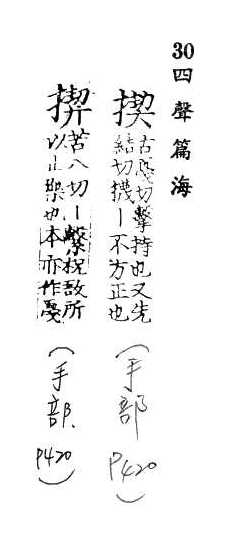 30四聲篇海
揳
古戛切擊持也又先
結切丨不方正也
(手部 P420)
苦八切丨繫柷敔所
以止樂也本亦作戛
(手部 P420)